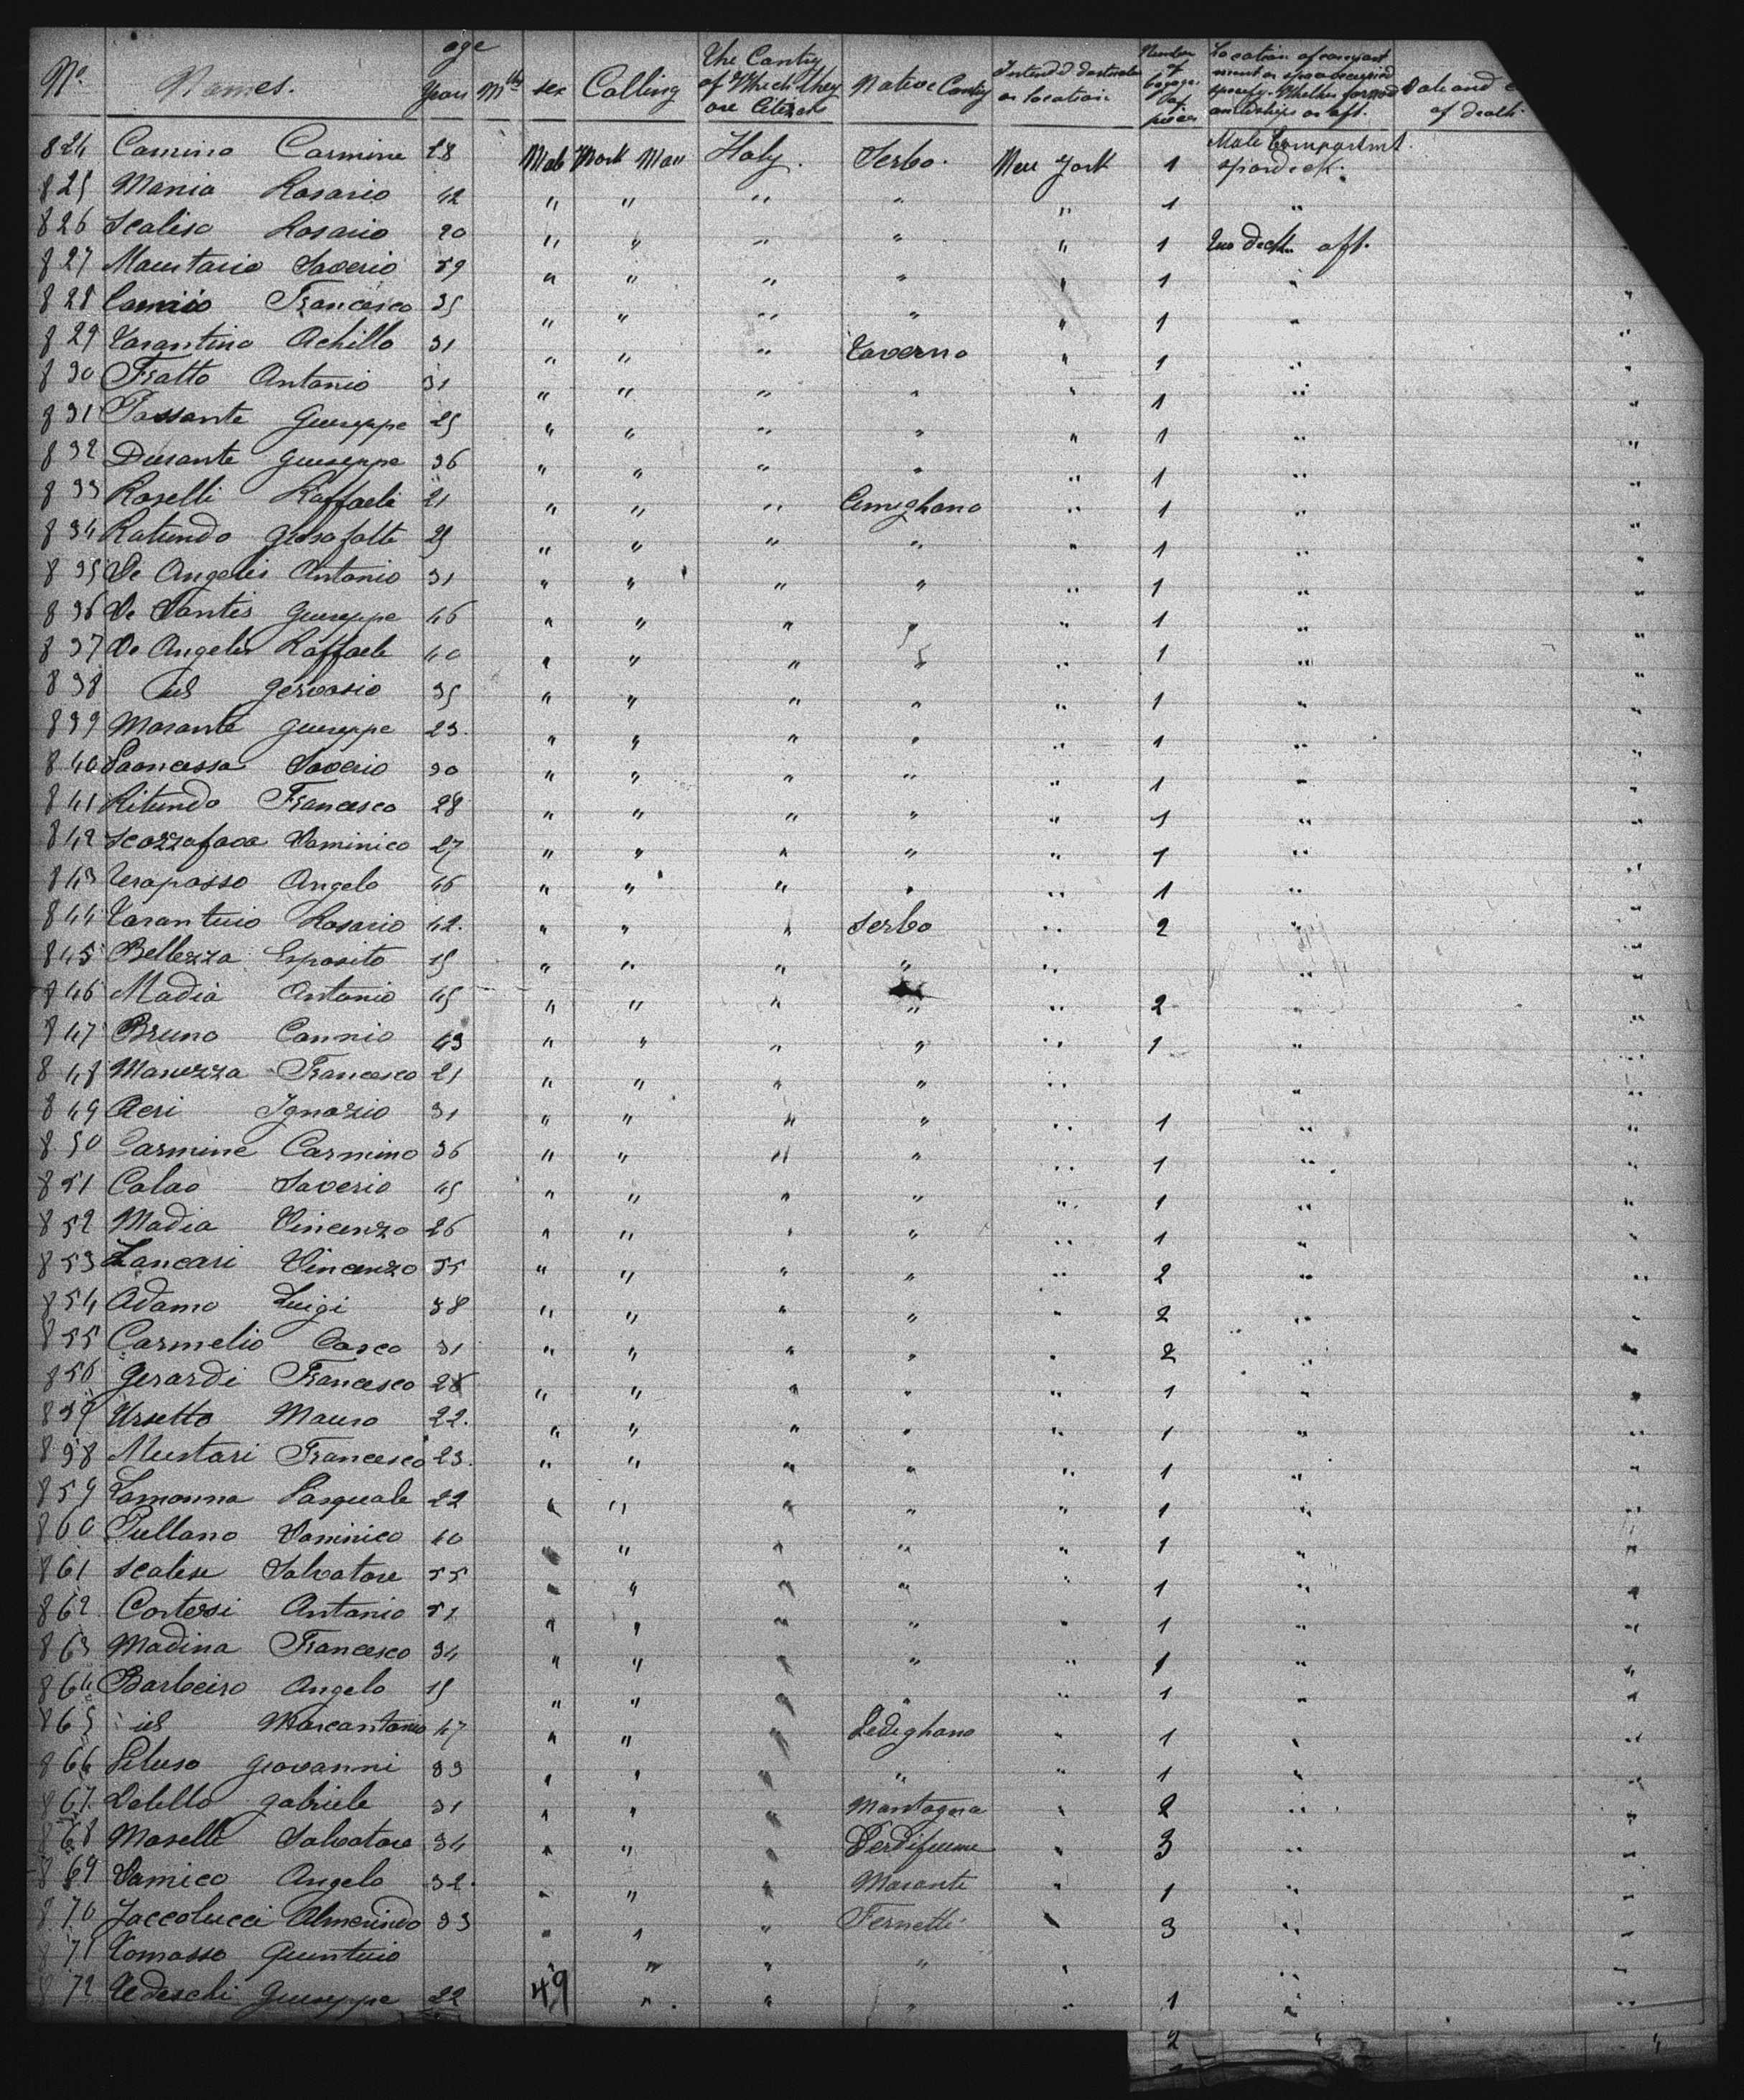 No. Names. age Years Mths sex Calling The Contry of Which they are Citizens Native Contry Intended destination or location Number of bagage pieces Location of compartment or space occupied Whether forward amidships or aft. Date and of death.
824 Camino Carmine 28 Male Work Man Italy. Serbo. New York 1 Male Compartmt. spardeck.
825 Mania Rosario 42 " " " " " 1 "
826 Scalise Rosario 20 " " " " " 1 deck aft.
827 Saverio 59 " " " " " 1 "
828 Francesco 35 " " " " " 1 "
829 Tarantino Achillo 31 " " " Taverna " 1 "
830 Fratto Antonio 31 " " " " " 1 "
831 Passante Giuseppe 25 " " " " " 1 "
832 Durante Giuseppe 36 " " " " " 1 "
833 Roselli Raffaele 21 " " " " 1 "
834 Rotundo 25 " " " " " 1 "
835 De Angelis Antonio 31 " " " " " 1 "
836 De Santis Giuseppe 46 " " " " " 1 "
837 De Angelis Raffaele 40 " " " " " 1 "
838 id Gervasio 35 " " " " " 1 "
839 Morante Giuseppe 23. " " " " " 1 "
840 Saverio 30 " " " " " 1 "
841 Ritundo Francesco 28 " " " " " 1 "
842 Scozzafava Dominico 27 " " " " " 1 "
843 Angelo 46 " " " " " 1 "
844 Tarantino Rosario 42. " " " Serbo " 2 "
845 Bellezza Esposito 15 " " " " " "
846 Madia Antonio 45 " " " " " 2 "
847 Bruno Cannio 43 " " " " " 1 "
848 Manezza Francesco 21 " " " " " "
849 Acri Ignazio 31 " " " " " 1 "
850 Carmine Carmino 36 " " " " " 1 "
851 Calao Saverio 45 " " " " " 1 "
852 Madia Vincenzo 26 " " " " " 1 "
853 Lancari Vincenzo 55 " " " " " 2 "
854 Adamo Luigi 38 " " " " " 2 "
855 Carmelio Casco 31 " " " " " 2 "
856 Gerardi Francesco " " " " " 1 "
857 Ursetto Mauro 22. " " " " " 1 "
858 Mustari Francesco 23. " " " " " 1 "
859 Lamanna Pasquale 22 " " " " " 1 "
860 Pullano Dominico 40 " " " " " 1 "
861 Scalise Salvatore 55 " " " " " 1 "
862 Cortesi Antonio 51 " " " " " 1 "
863 Madina Francesco 34 " " " " " 1 "
864 Barbeiro Angelo 15 " " " " " 1 "
865 id Marcantonio 47 " " " " 1 "
866 Peluso Giovanni 33 " " " " " 1 "
867 Gabriele 31 " " " Montagna " 2 "
868 Maselli Salvatore 34 " " " Perdifume " 3 "
869 Damico Angelo 32. " " " Morante " 1 "
870 Jaccolucci Almerindo 33 " " " Fernetti " 3 "
871 Tomasso Quintino " " " " "
872 Tedeschi Giuseppe 22 49 " " " " 1 "
2 " "